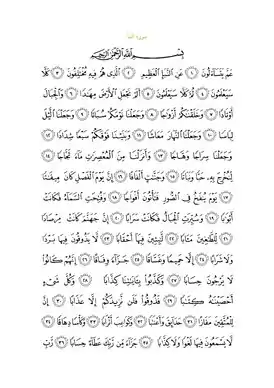 سورة النبأ
بِسْمِ اللَّهِ الرَّحْمَٰنِ الرَّحِيمِ
عَمَّ يَتَسَاءَلُونَ ١ عَنِ النَّبَإِ الْعَظِيمِ ٢ الَّذِي هُمْ فِيهِ مُخْتَلِفُونَ ٣ كَلَّا
سَيَعْلَمُونَ ٤ ثُمَّ كَلَّا سَيَعْلَمُونَ ٥ أَلَمْ نَجْعَلِ الْأَرْضَ مِهَٰدًا ٦ وَالْجِبَالَ
أَوْتَادًا ٧ وَخَلَقْنَٰكُمْ أَزْوَٰجًا ٨ وَجَعَلْنَا نَوْمَكُمْ سُبَاتًا ٩ وَجَعَلْنَا الَّيْلَ
لِبَاسًا ١٠ وَجَعَلْنَا النَّهَارَ مَعَاشًا ١١ وَبَنَيْنَا فَوْقَكُمْ سَبْعًا شِدَادًا ١٢
وَجَعَلْنَا سِرَاجًا وَهَّاجًا ١٣ وَأَنزَلْنَا مِنَ الْمُعْصِرَٰتِ مَاءً ثَجَّاجًا ١٤
لِّنُخْرِجَ بِهِ حَبًّا وَنَبَاتًا ١٥ وَجَنَّٰتٍ أَلْفَافًا ١٦ إِنَّ يَوْمَ الْفَصْلِ كَانَ مِيقَٰتًا
١٧ يَوْمَ يُنفَخُ فِي الصُّورِ فَتَأْتُونَ أَفْوَاجًا ١٨ وَفُتِحَتِ السَّمَاءُ فَكَانَتْ
أَبْوَٰبًا ١٩ وَسُيِّرَتِ الْجِبَالُ فَكَانَتْ سَرَابًا ٢٠ إِنَّ جَهَنَّمَ كَانَتْ مِرْصَادًا
٢١ لِّلطَّٰغِينَ مَـَٔابًا ٢٢ لَّٰبِثِينَ فِيهَا أَحْقَابًا ٢٣ لَّا يَذُوقُونَ فِيهَا بَرْدًا
وَلَا شَرَابًا ٢٤ إِلَّا حَمِيمًا وَغَسَّاقًا ٢٥ جَزَاءً وِفَاقًا ٢٦ إِنَّهُمْ كَانُوا
لَا يَرْجُونَ حِسَابًا ٢٧ وَكَذَّبُوا بِـَٔايَٰتِنَا كِذَّابًا ٢٨ وَكُلَّ شَيْءٍ
أَحْصَيْنَٰهُ كِتَٰبًا ٢٩ فَذُوقُوا فَلَن نَّزِيدَكُمْ إِلَّا عَذَابًا ٣٠ إِنَّ
لِلْمُتَّقِينَ مَفَازًا ٣١ حَدَائِقَ وَأَعْنَٰبًا ٣٢ وَكَوَاعِبَ أَتْرَابًا ٣٣ وَكَأْسًا دِهَاقًا ٣٤
لَّا يَسْمَعُونَ فِيهَا لَغْوًا وَلَا كِذَّٰبًا ٣٥ جَزَاءً مِّن رَّبِّكَ عَطَاءً حِسَابًا ٣٦ رَّبِّ